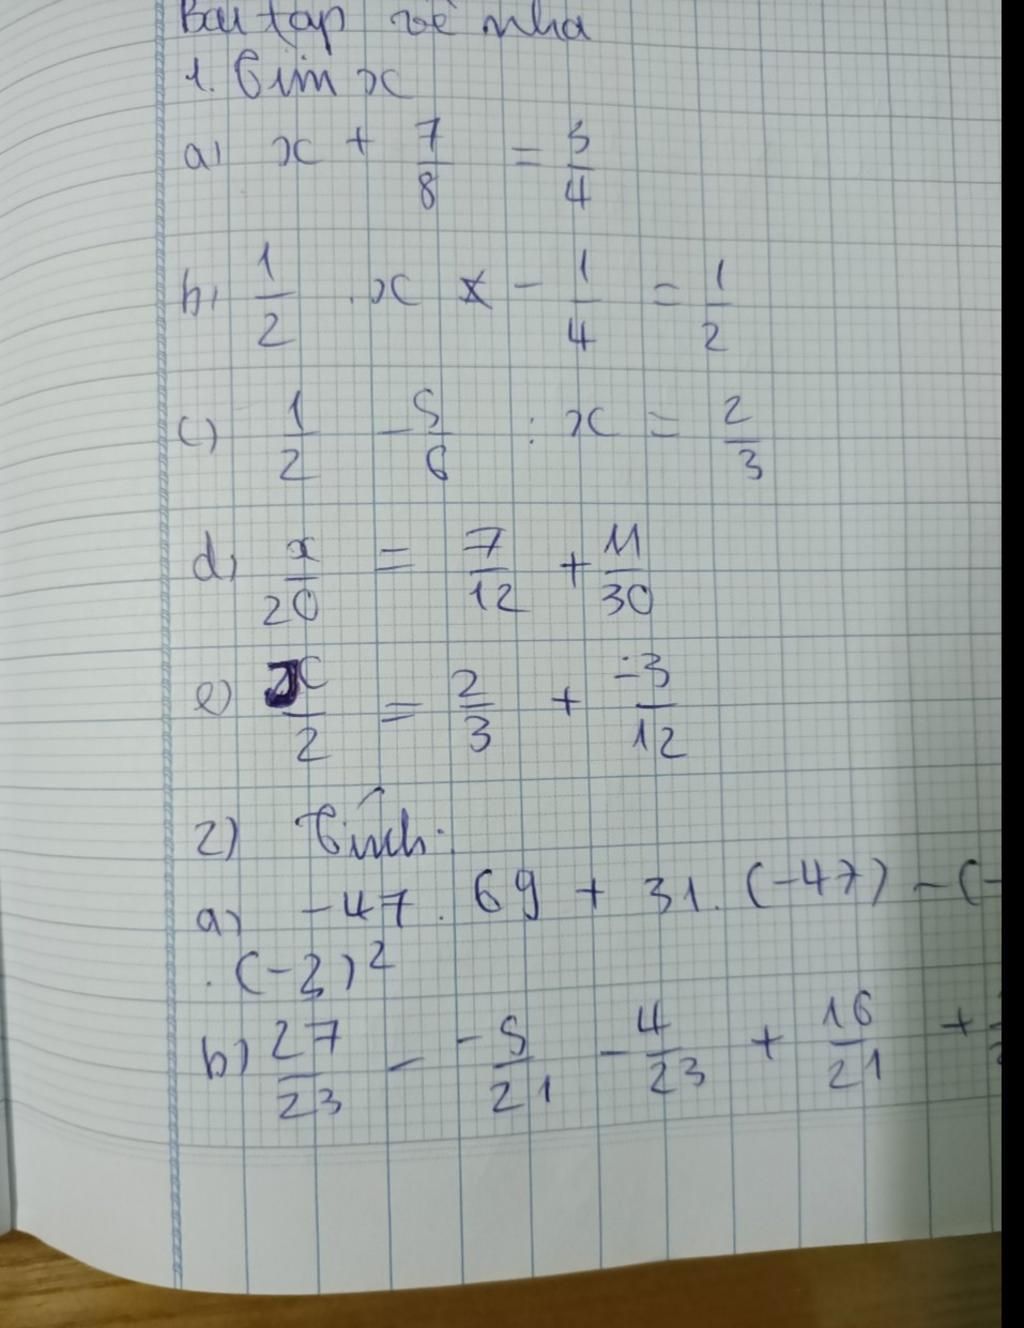 Bài tập về nhà
1. Tìm x
a) x + 7/8 = 3/4
b) 1/2 . x - 1/4 = 1/2
c) 1/2 - 5/6 : x = 2/3
d) x/20 = 7/12 + 11/30
e) x/2 = 2/3 + -3/12
2) Tính.
a) -47 . 69 + 31. (-47) - (-
. (-2)²
b) 27/23 - -5/21 - 4/23 + 16/21 +